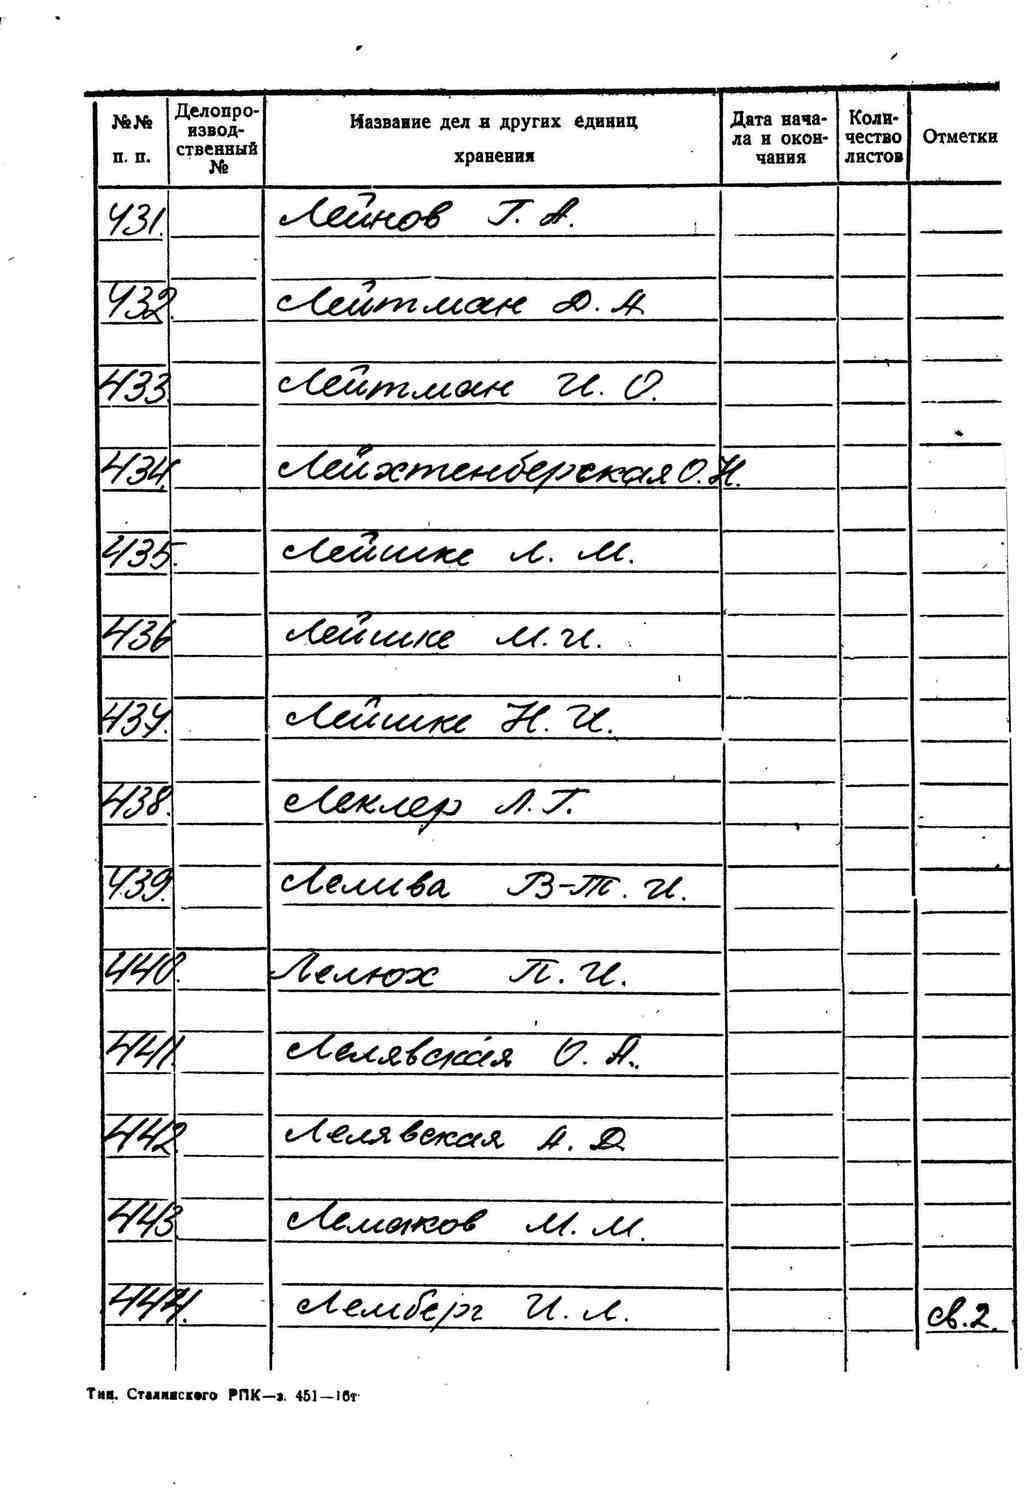 №№ п. п. Делопроизводственный № Название дел и других единиц хранения Дата начала и окончания Количество листов Отметки
431. Лейнов Г. А.
432. Лейтман Д. А.
433. Лейтман И. О.
434. Лейхтенбергская О. Н.
435. Лейшке Л. М.
436 Лейшке М. И.
437. Лейшке Н. И.
438. Леклер Л. Г.
439. Лелива В-Т. И.
440. Лелюх П. И.
441. Лелявская О. А.
442. Лелявская А. Д.
443. Лемаков М. М.
444. Лемберг И. Л. св. 2.
Тип. Сталинского РПК—з. 451—16т